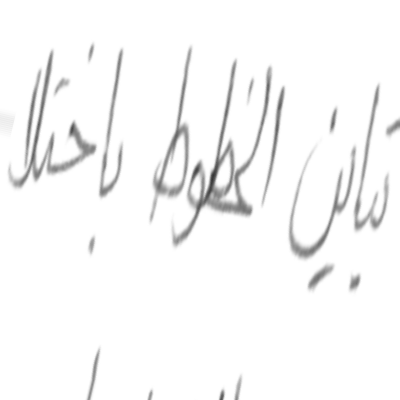 تباين الخطوط باختلا